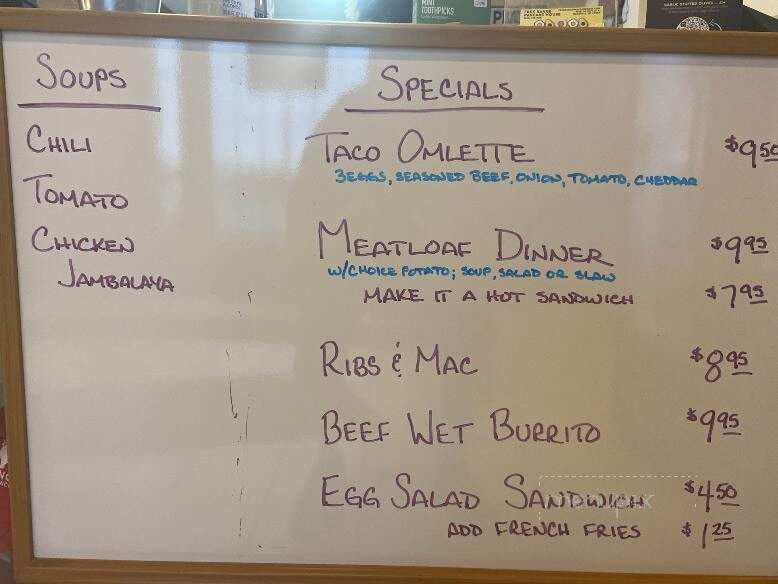 MINI
TOOTHPICKS
SOUPS
CHILI
TOMATO
CHICKEN
JAMBALAYA
SPECIALS
TACO OMLETTE $9.50
3 EGGS, SEASONED BEEF, ONION, TOMATO, CHEDDAR
MEATLOAF DINNER $9.95
W/CHOICE POTATO; SOUP, SALAD OR SLAW
MAKE IT A HOT SANDWICH $7.95
RIBS & MAC $8.95
BEEF WET BURRITO $9.95
EGG SALAD SANDWICH $4.50
ADD FRENCH FRIES $1.25